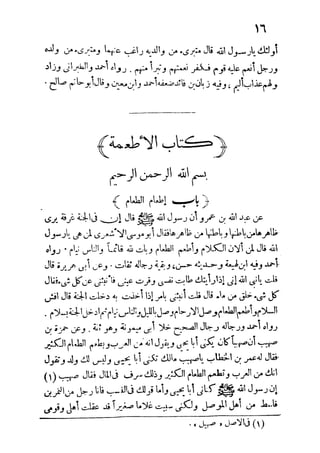 ١٦
أولئك يارسول الله قال متبرىء من والديه راغب عنهما ومتبرىء من ولده
ورجل أنعم عليه قوم فكفر نعمتهم وتبرأ منهم . رواه أحمد والطبرانى وزاد
ولهم عذاب أليم ، وفيه زبان بن فائد ضعفه أحمد وابن معين وقال أبو حاتم صالح .
﴿ كتاب الأطعمة ﴾
بسم الله الرحمن الرحيم
﴿ باب إطعام الطعام ﴾
عن عبد الله بن عمرو أن رسول الله ﷺ قال إن فى الجنة غرفة يرى
ظاهرها من باطنها وباطنها من ظاهرها فقال أبو موسى الأشعرى لمن هى يارسول
الله قال لمن ألان الكلام وأطعم الطعام وبات لله قائماً والناس نيام . رواه
أحمد وفيه ابن لهيعة وحديثه حسن ، وبقية رجاله ثقات . وعن أبى هريرة قال
قلت يانبى الله إنى إذا رأيتك طابت نفسى وقرت عينى فأنبئنى عن كل شىء فقال
كل شىء خلق من ماء قال قلت أنبئنى بأمر إذا أخذت به دخلت الجنة قال افش
السلام وأطعم الطعام وصل الارحام وصل بالليل والناس نيام ثم ادخل الجنة بسلام .
رواه أحمد ورجاله رجال الصحيح خلا أبى ميمونة وهو ثقة . وعن حمزة بن
صهيب أن صهيبا كان يكنى أبا يحيى ويقول انه من العرب ويطعم الطعام الكثير
فقال له عمر بن الخطاب ياصهيب مالك تكنى أبا يحيى وليس لك ولد وتقول
انك من العرب وتطعم الطعام الكثير وذلك سرف فى المال فقال صهيب (١)
إن رسول الله ﷺ كنانى أبا يحيى وأما قولك فى النسب فأنا رجل من النمر بن
قاسط من أهل الموصل ولكنى سبيت غلاما صغيراً قد عقلت أهلى وقومى
(١) فى الاصل « صهيل » .